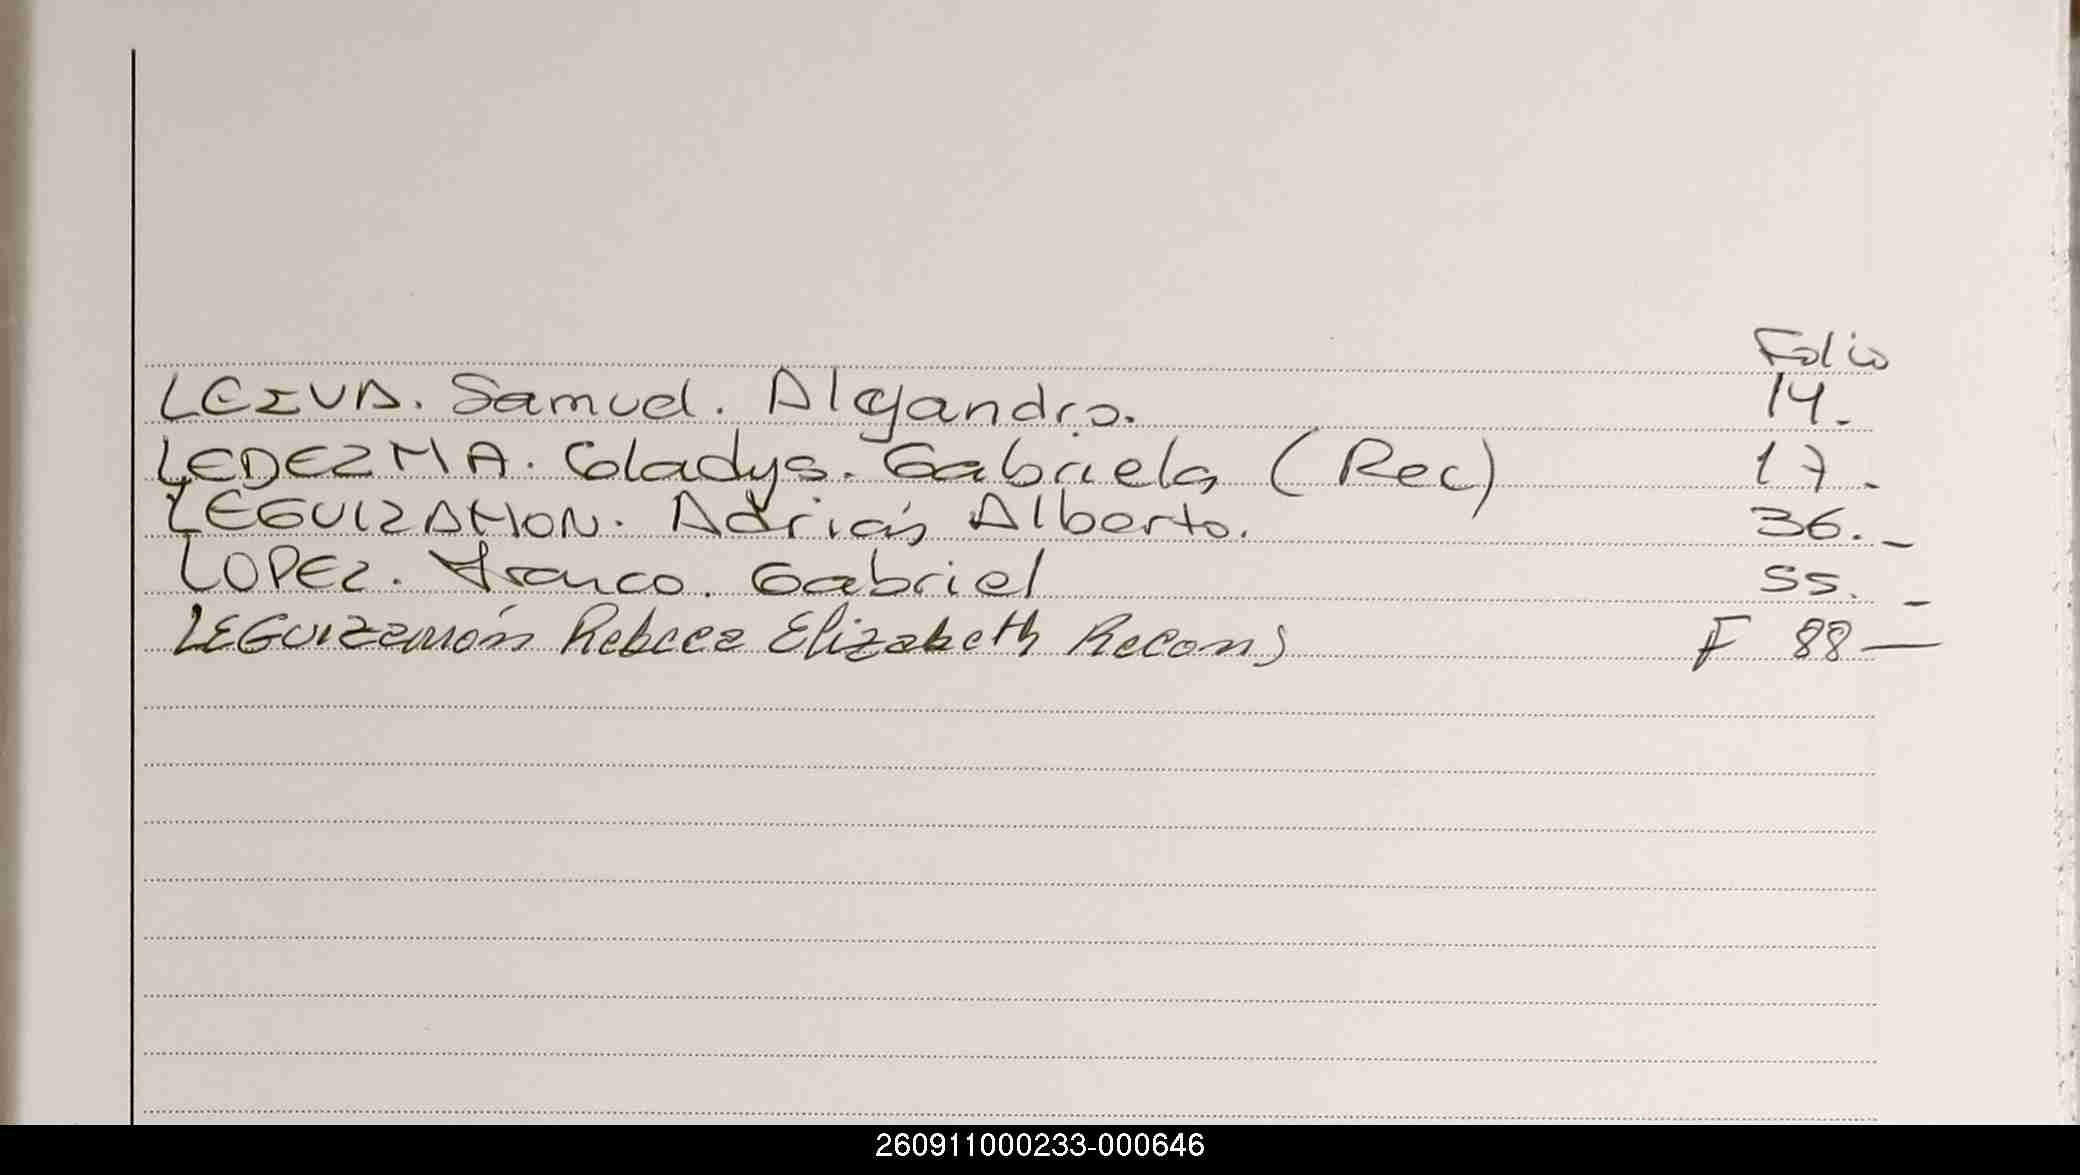 Folio
LEIVA. Samuel. Alejandro. 14.-
LEDEZMA. Gladys. Gabriela (Rec) 17.-
LEGUIZAMON. Adrián Alberto. 36.-
LOPEZ. Franco. Gabriel 55.-
LEGUIZamón Rebeca Elizabeth Recon) F 88—
260911000233-000646